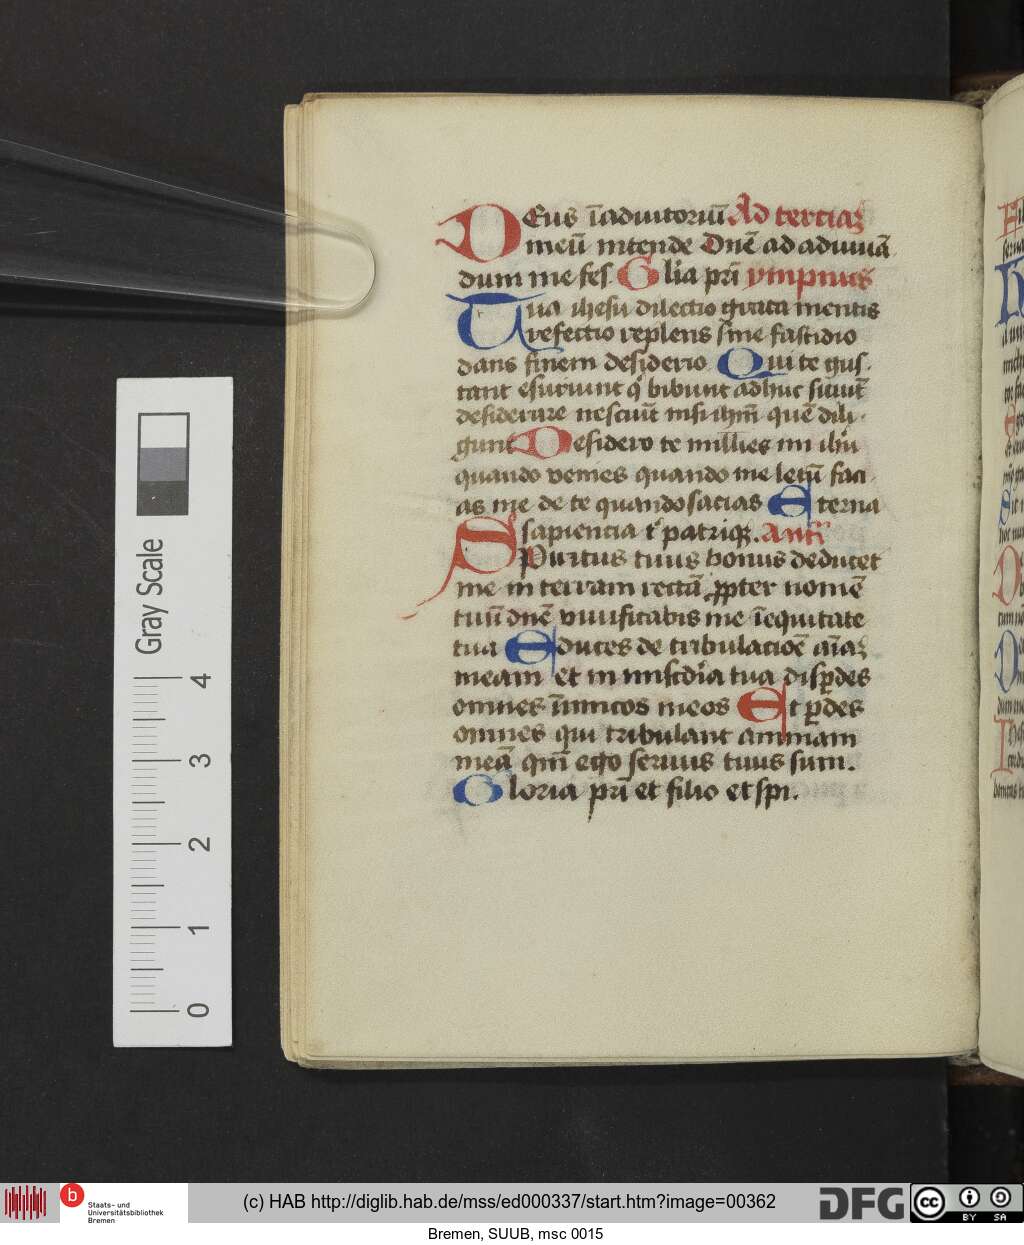 DEus īadiutoriū Ad terciaȝ
meū intende Dn̄e ad adiuuā
dum me fes. Glīa prī ympnus
Tua ihesu dilectio grata mentis
refectio replens sine fastidio
dans finem desiderio Qui te gus-
tant esuriunt q̇ bibunt adhuc siciūt
desiderare nesciūt nisi ihm̄ quē dili-
gunt Desidero te millies mi ihū
quando venies quando me letū faci-
as me de te quando sacias Eterna
sapiencia et patriqꝫ. Antī
Spiritus tuus bonus deducet
me in terram rectā ꝓpter nomē
tuū dn̄e viuificabis me ī equitate
tua Educes de tribulacioē aīaȝ
meam et in miscdīa tua disꝑdes
omnes īimicos meos Et ꝑdes
omnes qui tribulant animam
meā qm̄ ego seruus tuus sum.
Gloria prī et filio et spī.
Gray Scale
4
3
2
1
0
b
Staats- und
Universitätsbibliothek
Bremen
(c) HAB http://diglib.hab.de/mss/ed000337/start.htm?image=00362
DFG
cc
BY
SA
Bremen, SUUB, msc 0015